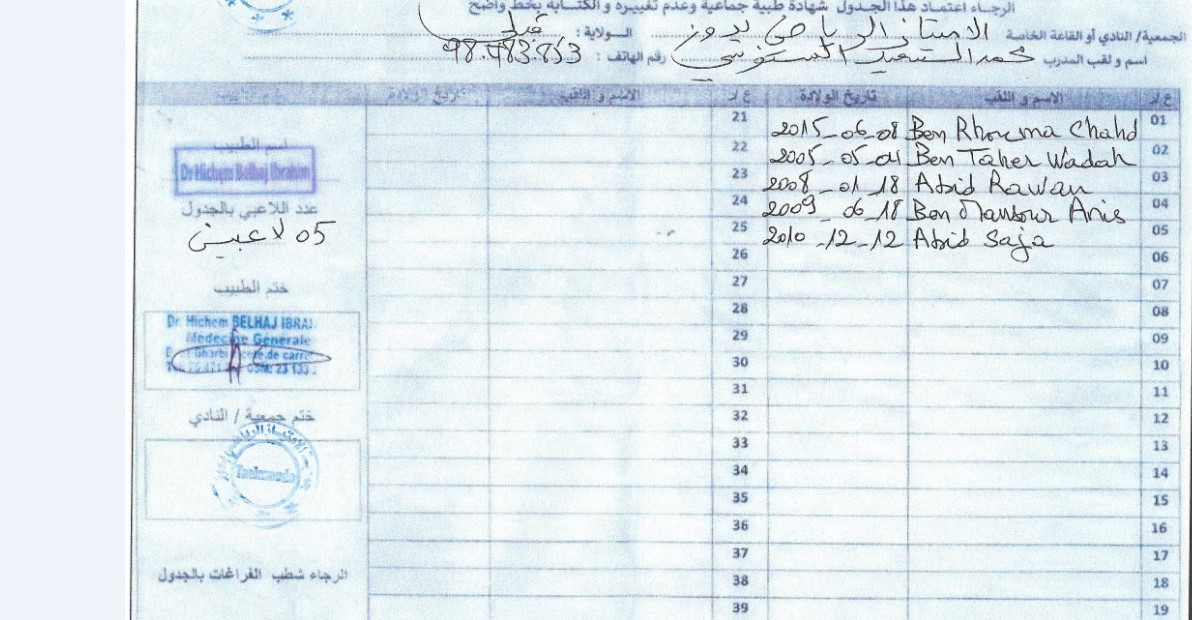 الرجاء اعتماد هذا الجدول شهادة طبية جماعية وعدم تغييره و الكتابة بخط واضح
الجمعية/ النادي أو القاعة الخاصة : الامتياز الرياضي بدوز الولاية : قبلي
اسم و لقب المدرب محمد السعيد رقم الهاتف : 98.483.853
ع/ر الاسم و اللقب تاريخ الولادة ع/ر الاسم و اللقب تاريخ الولادة
01 Ben Rhouma Chahd 2015-06-08 21
02 Ben Taher Wadah 2005-05-01 22
03 Abid Rawan 2008-01-18 23
04 Ben Mansour Anis 2009-06-18 24
05 Abid Saja 2010-12-12 25
06 26
07 27
08 28
09 29
10 30
11 31
12 32
13 33
14 34
15 35
16 36
17 37
18 38
19 39
اسم الطبيب
Dr Hichem Belhaj Ibrahim
عدد اللاعبي بالجدول
05 لاعبين
ختم الطبيب
Dr. Hichem BELHAJ IBRA
Medecine Generale
ختم جمعية / النادي
Taekwondo
الرجاء شطب الفراغات بالجدول